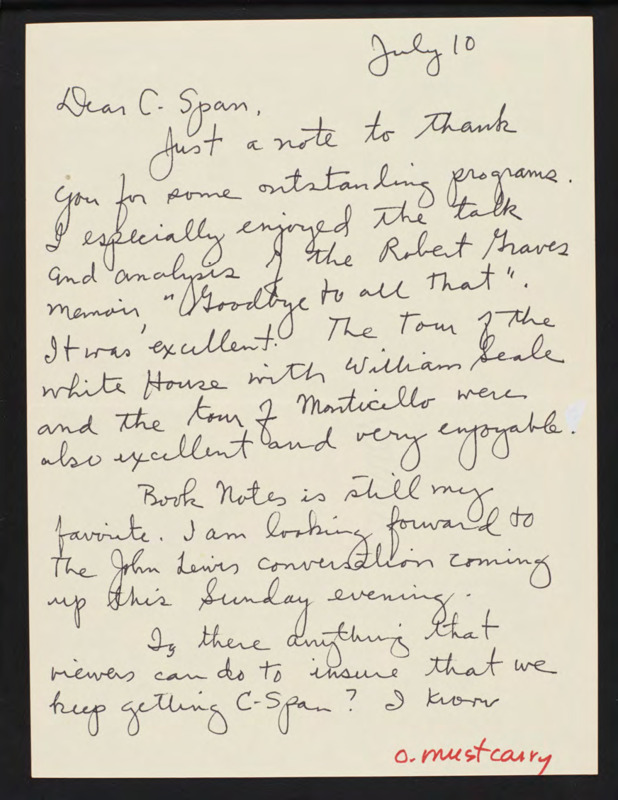 July 10
Dear C-Span,
Just a note to thank
you for some outstanding programs.
I especially enjoyed the talk
and analysis of the Robert Graves
memoir "Goodbye to all That".
It was excellent. The Tour of the
white House with William Seale
and the tour of Monticello were
also excellent and very enjoyable.
Book Notes is still my
favorite. I am looking forward to
The John Lewis conversation coming
up this Sunday evening.
Is there anything that
viewers can do to insure that we
keep getting C-Span? I know
o. must carry